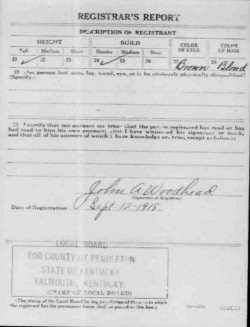 REGISTRAR'S REPORT
DESCRIPTION OF REGISTRANT
HEIGHT BUILD COLOR OF EYES COLOR OF HAIR
Tall Medium Short Slender Medium Stout
21 22 23 24 Brown Blond
29 Has person lost arm, leg, hand, eye, or is he obviously physically disqualified?
(Specify.)
30 I certify that my answers are true; that the person registered has read or has
had read to him his own answers; that I have witnessed his signature or mark,
and that all of his answers of which I have knowledge are true, except as follows:
John A Woodhead
(Signature of Registrar)
Date of Registration Sept 12-1918
LOCAL BOARD
FOR COUNTY OF PENDLETON
STATE OF KENTUCKY
FALMOUTH, KENTUCKY.
(STAMP OF LOCAL BOARD)
(The stamp of the Local Board having jurisdiction of the area in which
the registrant has his permanent home shall be placed in this box.)